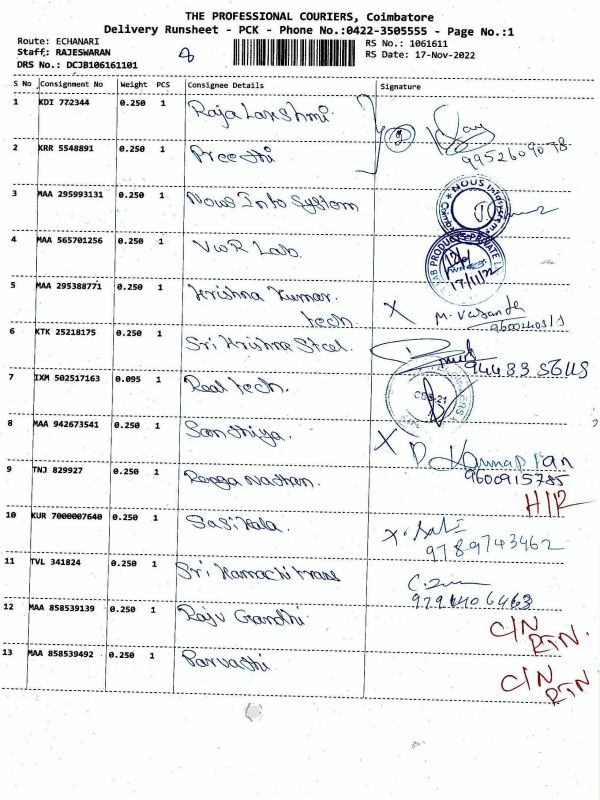 THE PROFESSIONAL COURIERS, Coimbatore
Delivery Runsheet - PCK - Phone No.:0422-3505555 - Page No.:1
Route: ECHANARI RS No.: 1061611
Staff: RAJESWARAN RS Date: 17-Nov-2022
DRS No.: DCJB106161101
S No Consignment No Weight PCS Consignee Details Signature
1 KDI 772344 0.250 1 Raja Lakshmi
2 KRR 5548891 0.250 1 Preethi 9952609078
3 MAA 295993131 0.250 1 Nous Info System NOUS
4 MAA 565701256 0.250 1 VWR Lab. LAB PRODUCTS PRIVATE 17/11/22
5 MAA 295388771 0.250 1 Krishna Kumar. X M. Vasanth
tech
6 KTK 25218175 0.250 1 Sri Krishna Steel.
7 IXM 502517163 0.095 1 Real tech.
8 MAA 942673541 0.250 1 Santhiya. X
9 TNJ 829927 0.250 1 Ranga Nathan. 9600915785
H/R
10 KUR 7000007640 0.250 1 Sasikala. x.
9789743462
11 TVL 341824 0.250 1 Sri Kamachi trans
12 MAA 858539139 0.250 1 Raju Gandhi. C/N
RTN.
13 MAA 858539492 0.250 1 Parvathi C/N
RTN